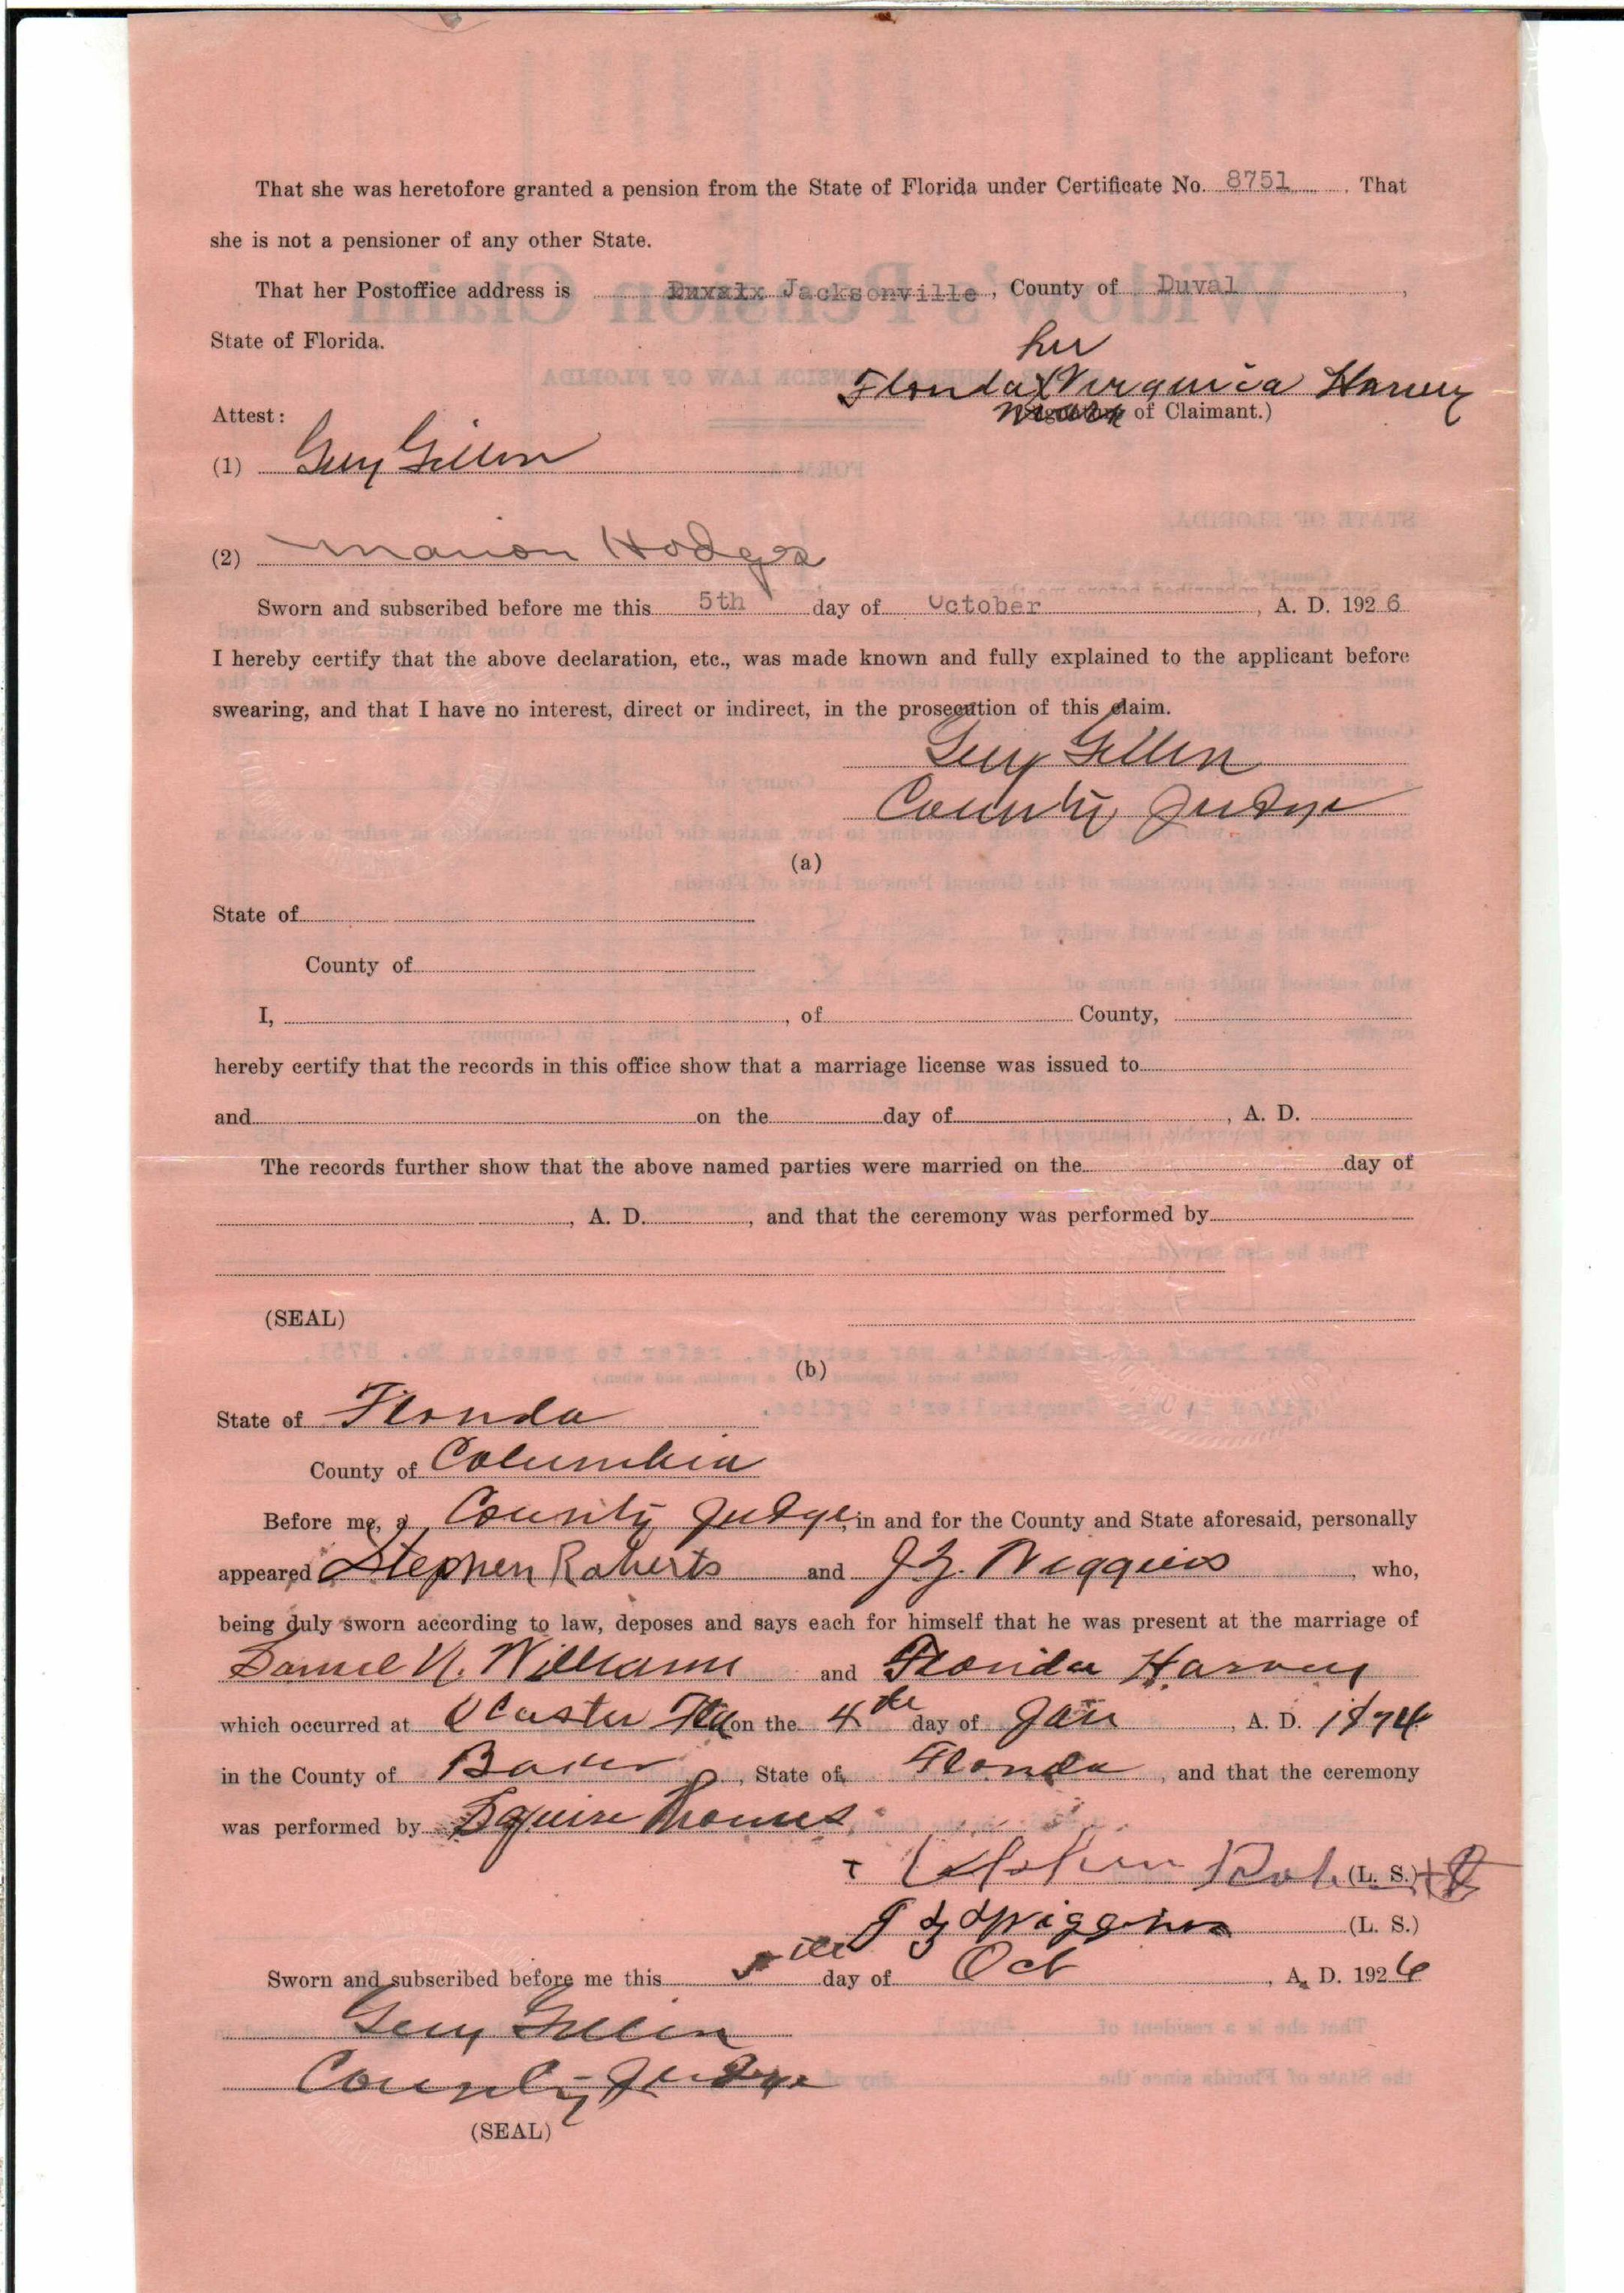 That she was heretofore granted a pension from the State of Florida under Certificate No. 8751. That
she is not a pensioner of any other State.
That her Postoffice address is Duvalx Jacksonville, County of Duval,
State of Florida.
her
Florida X Virginia Harvey
mark
(Signature of Claimant.)
Attest:
(1) Guy Gillen
(2) Marion Hodges
Sworn and subscribed before me this 5th day of October, A. D. 1926
I hereby certify that the above declaration, etc., was made known and fully explained to the applicant before
swearing, and that I have no interest, direct or indirect, in the prosecution of this claim.
Guy Gillen
County Judge
(a)
State of
County of
I, , of County,
hereby certify that the records in this office show that a marriage license was issued to
and on the day of , A. D.
The records further show that the above named parties were married on the day of
, A. D. , and that the ceremony was performed by
(SEAL)
(b)
State of Florida
County of Columbia
Before me, a County Judge, in and for the County and State aforesaid, personally
appeared Stephen Roberts and J. Z. Wiggins, who,
being duly sworn according to law, deposes and says each for himself that he was present at the marriage of
Daniel N. Williams and Florida Harvey
which occurred at Olustee Fla on the 4th day of Jan, A. D. 1874
in the County of Baker, State of Florida, and that the ceremony
was performed by Squire Thomas.
(L. S.)
J Z Wiggins (L. S.)
Sworn and subscribed before me this 5th day of Oct, A. D. 1926
Guy Gillen
County Judge
(SEAL)